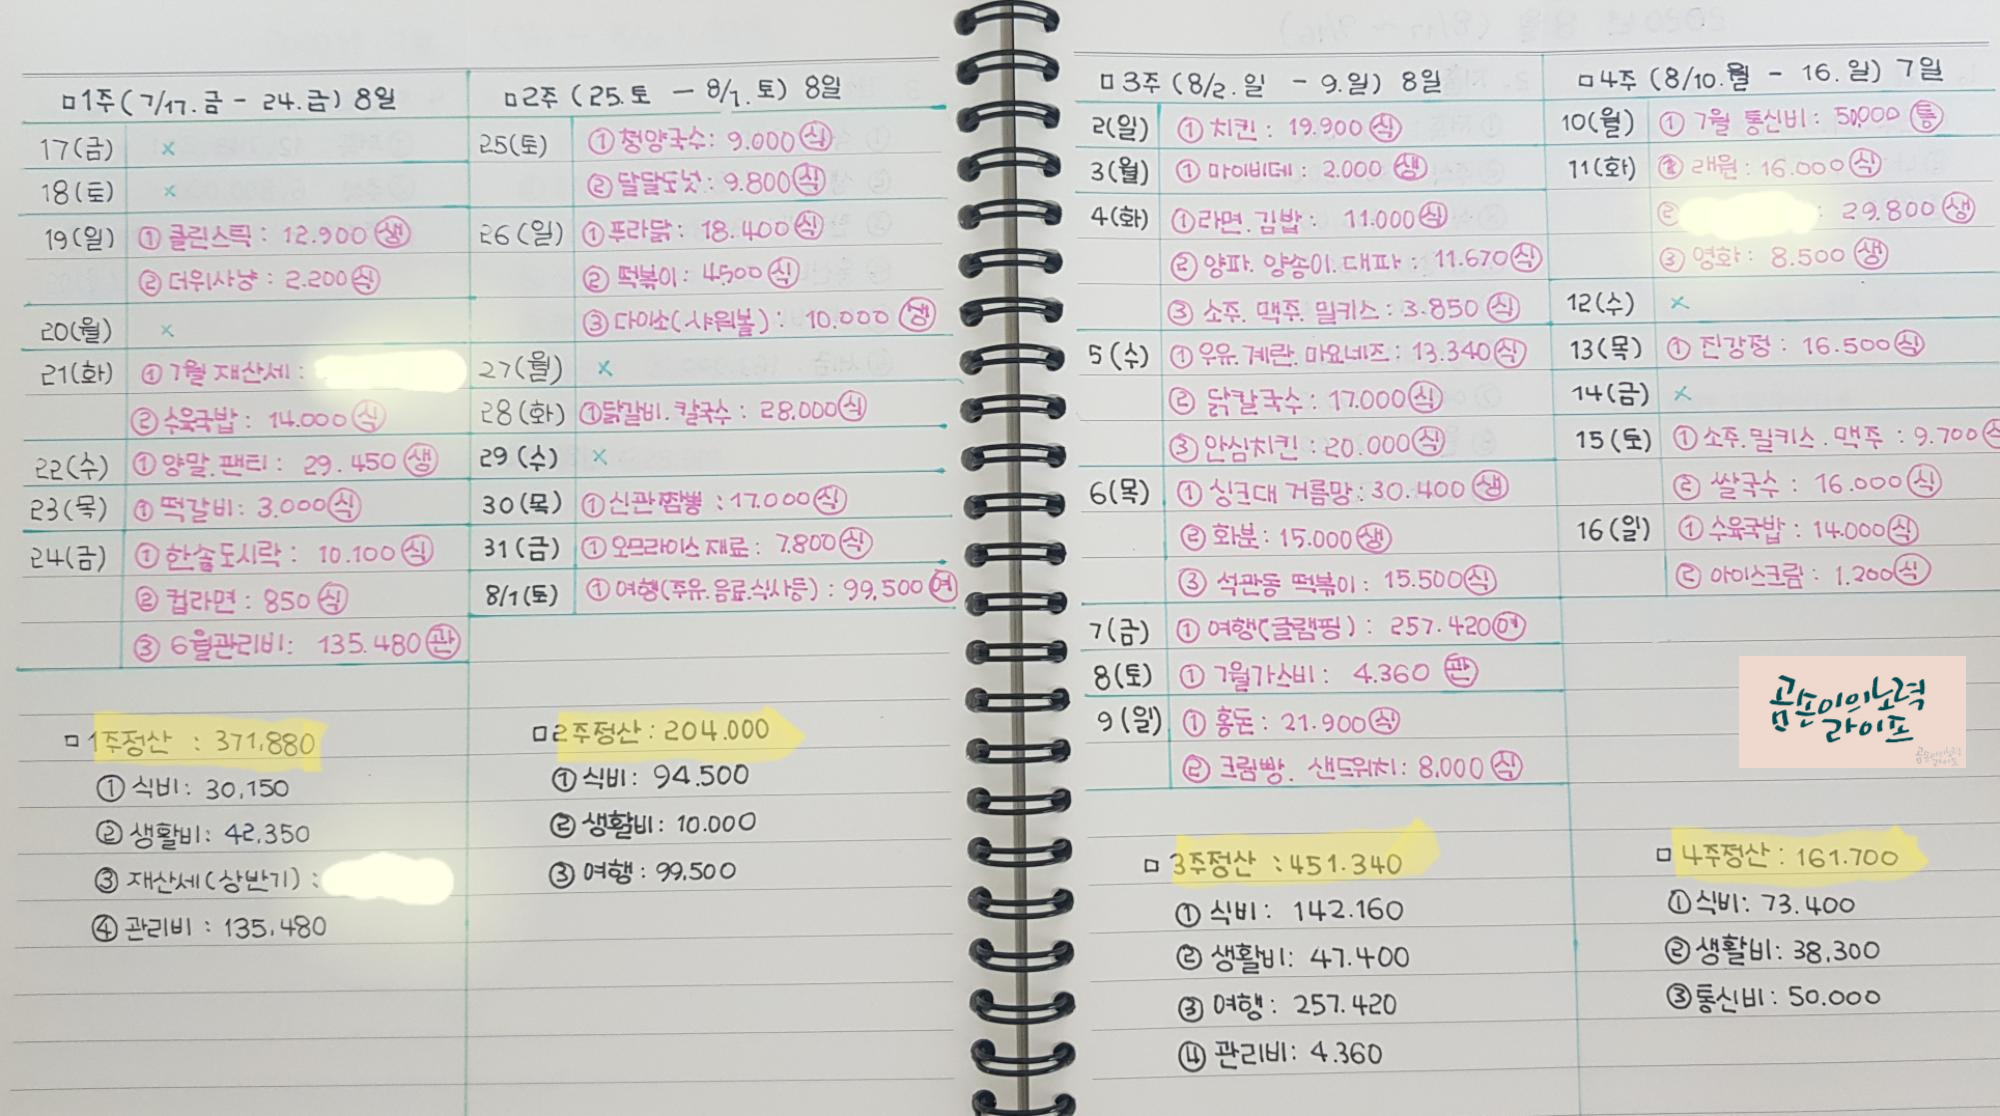 □1주(7/17.금 - 24.금) 8일
17(금) ×
18(토) ×
19(일) ① 클린스틱: 12.900 생
② 더위사냥: 2.200 식
20(월) ×
21(화) ① 7월 재산세:
② 수육국밥: 14.000 식
22(수) ① 양말.팬티: 29.450 생
23(목) ① 떡갈비: 3.000 식
24(금) ① 한솥도시락: 10.100 식
② 컵라면: 850 식
③ 6월관리비: 135.480 관
□1주정산 : 371,880
① 식비: 30,150
② 생활비: 42,350
③ 재산세(상반기):
④ 관리비: 135,480
□2주 (25.토 - 8/1.토) 8일
25(토) ① 청양국수: 9.000 식
② 달달도넛: 9.800 식
26(일) ① 푸라닭: 18.400 식
② 떡볶이: 4,500 식
③ 다이소(샤워볼): 10.000 생
27(월) ×
28(화) ① 닭갈비.칼국수: 28.000 식
29(수) ×
30(목) ① 신관짬뽕: 17.000 식
31(금) ① 오므라이스재료: 7.800 식
8/1(토) ① 여행(주유.음료.식사등): 99,500 여
□2주정산: 204.000
① 식비: 94.500
② 생활비: 10.000
③ 여행: 99,500
□3주 (8/2.일 - 9.일) 8일
2(일) ① 치킨: 19.900 식
3(월) ① 마이비데: 2.000 생
4(화) ① 라면.김밥: 11.000 식
② 양파.양송이.대파: 11.670 식
③ 소주.맥주.밀키스: 3.850 식
5(수) ① 우유.계란.마요네즈: 13.340 식
② 닭칼국수: 17.000 식
③ 안심치킨: 20.000 식
6(목) ① 싱크대 거름망: 30.400 생
② 화분: 15.000 생
③ 석관동 떡볶이: 15.500 식
7(금) ① 여행(글램핑): 257.420 여
8(토) ① 7월가스비: 4.360 관
9(일) ① 홍돈: 21.900 식
② 크림빵.샌드위치: 8,000 식
□3주정산: 451.340
① 식비: 142.160
② 생활비: 47.400
③ 여행: 257.420
④ 관리비: 4.360
□4주 (8/10.월 - 16.일) 7일
10(월) ① 7월 통신비: 50,000 통
11(화) ① 래원: 16.000 식
② : 29.800 생
③ 영화: 8.500 생
12(수) ×
13(목) ① 진강정: 16.500 식
14(금) ×
15(토) ① 소주.밀키스.맥주: 9.700 식
② 쌀국수: 16.000 식
16(일) ① 수육국밥: 14.000 식
② 아이스크림: 1.200 식
곰손이의노력
라이프
곰손이의노력
라이프
□4주정산: 161.700
① 식비: 73.400
② 생활비: 38,300
③ 통신비: 50.000